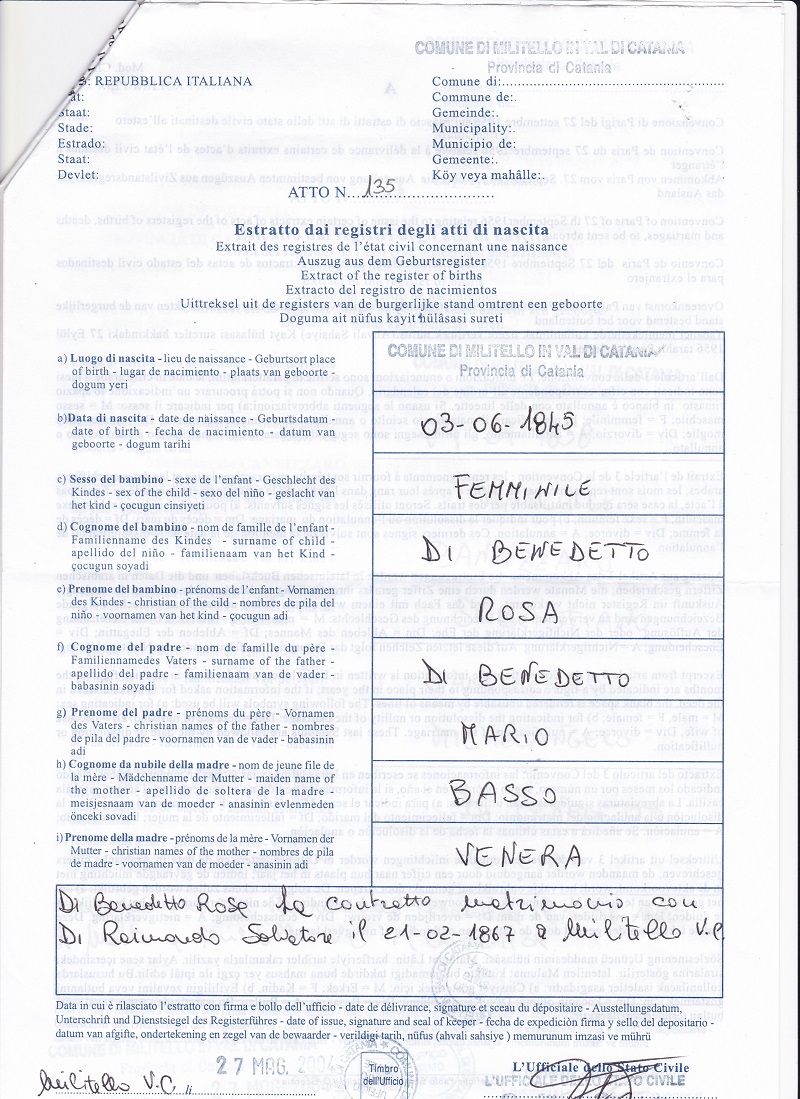 COMUNE DI MILITELLO IN VAL DI CATANIA
Provincia di Catania
REPUBBLICA ITALIANA
Staat:
Stade:
Estrado:
Staat:
Devlet:
Comune di:
Commune de:.
Gemeinde:.
Municipality:.
Municipio de:
Gemeente:.
Köy veya mahâlle:.
ATTO N. 135
Estratto dai registri degli atti di nascita
Extrait des registres de l'état civil concernant une naissance
Auszug aus dem Geburtsregister
Extract of the register of births
Extracto del registro de nacimientos
Uittreksel uit de registers van de burgerlijke stand omtrent een geboorte
Doguma ait nüfus kayit hülâsasi sureti
a) Luogo di nascita - lieu de naissance - Geburtsort place
of birth - lugar de nacimiento - plaats van geboorte -
dogum yeri
COMUNE DI MILITELLO IN VAL DI CATANIA
Provincia di Catania
b)Data di nascita - date de naissance - Geburtsdatum -
date of birth - fecha de nacimiento - datum van
geboorte - dogum tarihi
03-06-1845
c) Sesso del bambino - sexe de l'enfant - Geschlecht des
Kindes - sex of the child - sexo del niño - geslacht van
het kind - çocugun cinsiyeti
FEMMINILE
d) Cognome del bambino - nom de famille de l'enfant-
Familienname des Kindes - surname of child -
apellido del niño - familienaam van het Kind -
çocugun soyadi
DI BENEDETTO
e) Prenome del bambino - prénoms de l'enfant - Vornamen
des Kindes - christian of the cild - nombres de pila del
niño - voornamen van het kind - çocugun adi
ROSA
f) Cognome del padre - nom de famille du père -
Familiennamedes Vaters - surname of the father -
apellido del padre - familienaam van de vader -
babasinin soyadi
DI BENEDETTO
g) Prenome del padre - prénoms du père - Vornamen
des Vaters - christian names of the father - nombres
de pila del padre - voornamen van de vader - babasinin
adi
MARIO
h) Cognome da nubile della madre - nom de jeune file de
la mère - Mädchenname der Mutter - maiden name of
the mother - apellido de soltera de la madre -
meisjesnaam van de moeder - anasinin evlenmeden
önceki sovadi
BASSO
i) Prenome della madre - prénoms de la mère - Vornamen der
Mutter - christian names of the mother - nombres de pila
de madre - voornamen van de moeder - anasinin adi
VENERA
Di Benedetto Rosa ha contratto matrimonio con
Di Raimondo Salvatore il 21-02-1867 a Militello V.C.
Data in cui è rilasciato l'estratto con firma e bollo dell'ufficio - date de délivrance, signature et sceau du dépositaire - Ausstellungsdatum,
Unterschrift und Dienstsiegel des Registerführes - date of issue, signature and seal of keeper - fecha de expediciòn firma y sello del depositario -
datum van afgifte, ondertekening en zegel van de bewaarder - verildigi tarih, nüfus (ahvali sahsiye) memurunum imzasi ve mührü
Militello V.C. li 27 MAG. 2004
Timbro
dell'Ufficio
L'Ufficiale dello Stato Civile
L'UFFICIALE DELLO STATO CIVILE